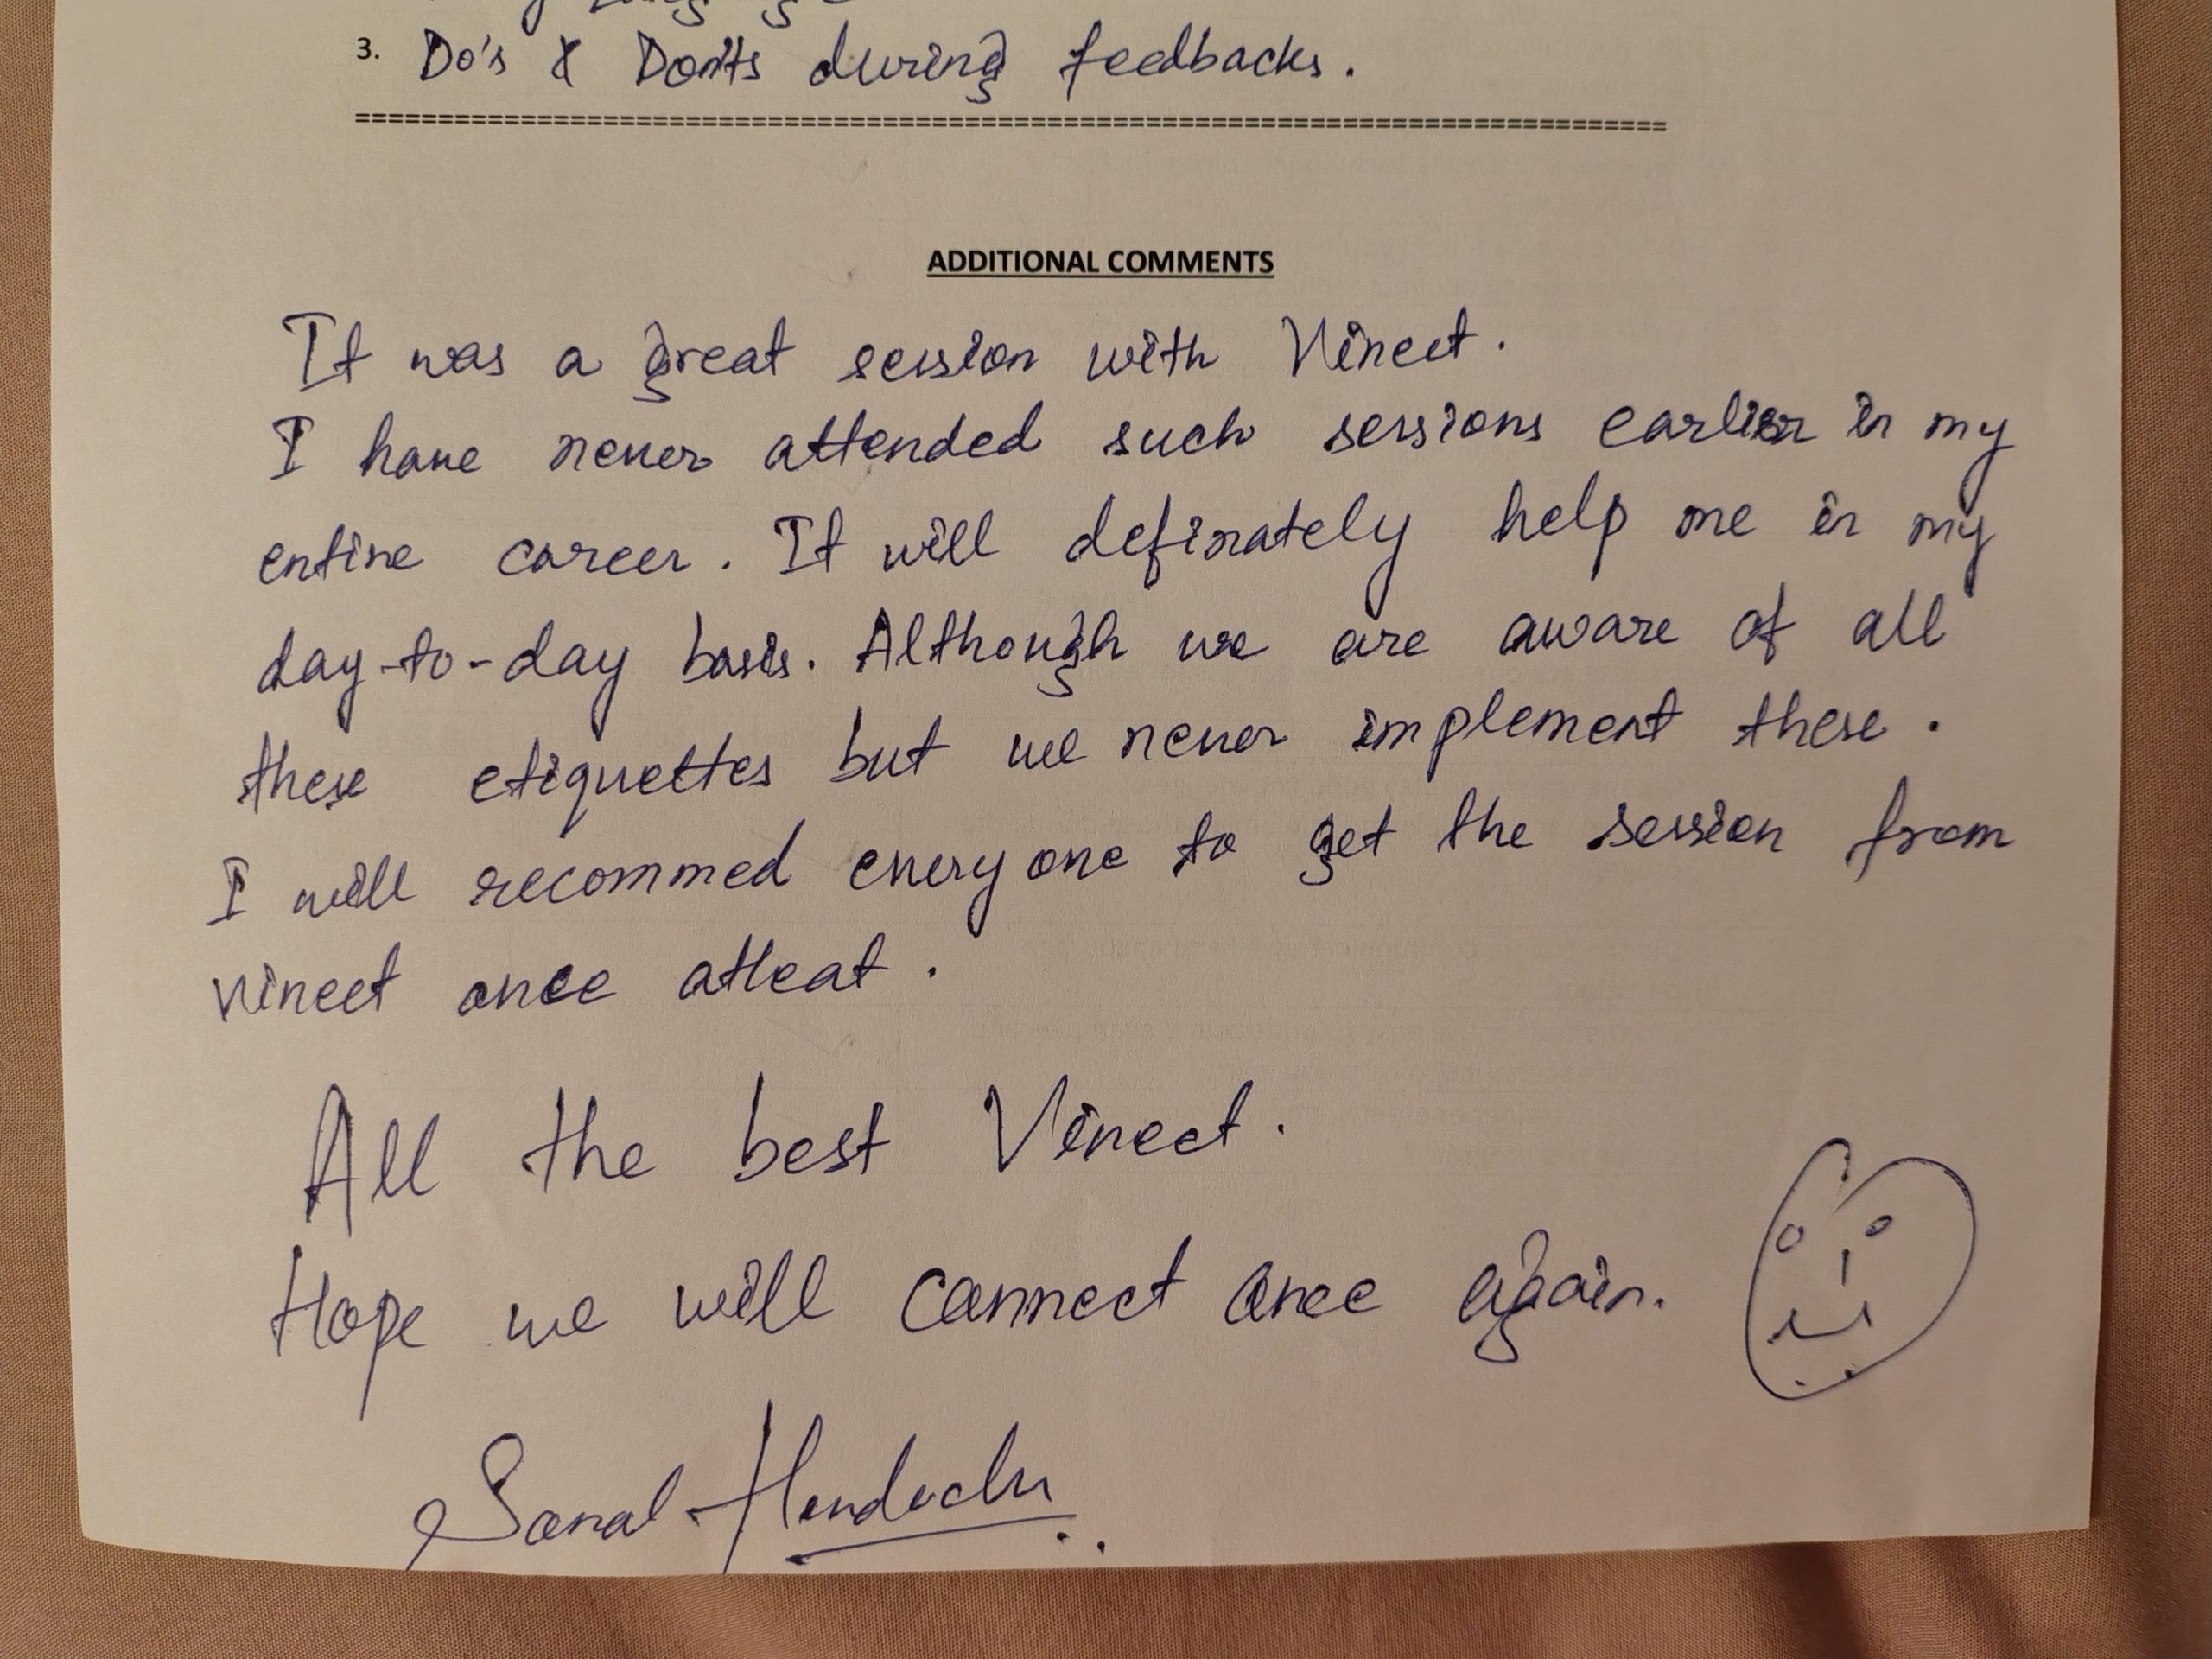 3. Do's & Don'ts during feedbacks.
====================================================================================
ADDITIONAL COMMENTS
It was a great session with Vineet.
I have never attended such sessions earlier in my
entire career. It will definately help me in my
day-to-day basis. Although we are aware of all
these etiquettes but we never implement these.
I will recommed everyone to get the session from
Vineet once atleat.
All the best Vineet.
Hope we will connect once again.
Sonal